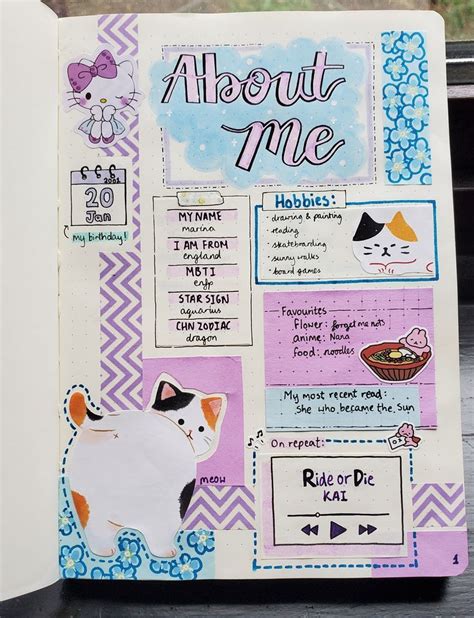 About
Me
20
2001
Jan
my birthday!
MY NAME
marina
I AM FROM
england
MBTI
enfp
STAR SIGN
aquarius
CHN ZODIAC
dragon
Hobbies:
• drawing & painting
• reading
• skateboarding
• sunny walks
• board games
Favourites
flower: forget me nots
anime: Nana
food: noodles
My most recent read:
She who became the Sun
meow
On repeat:
Ride or Die
KAI
1